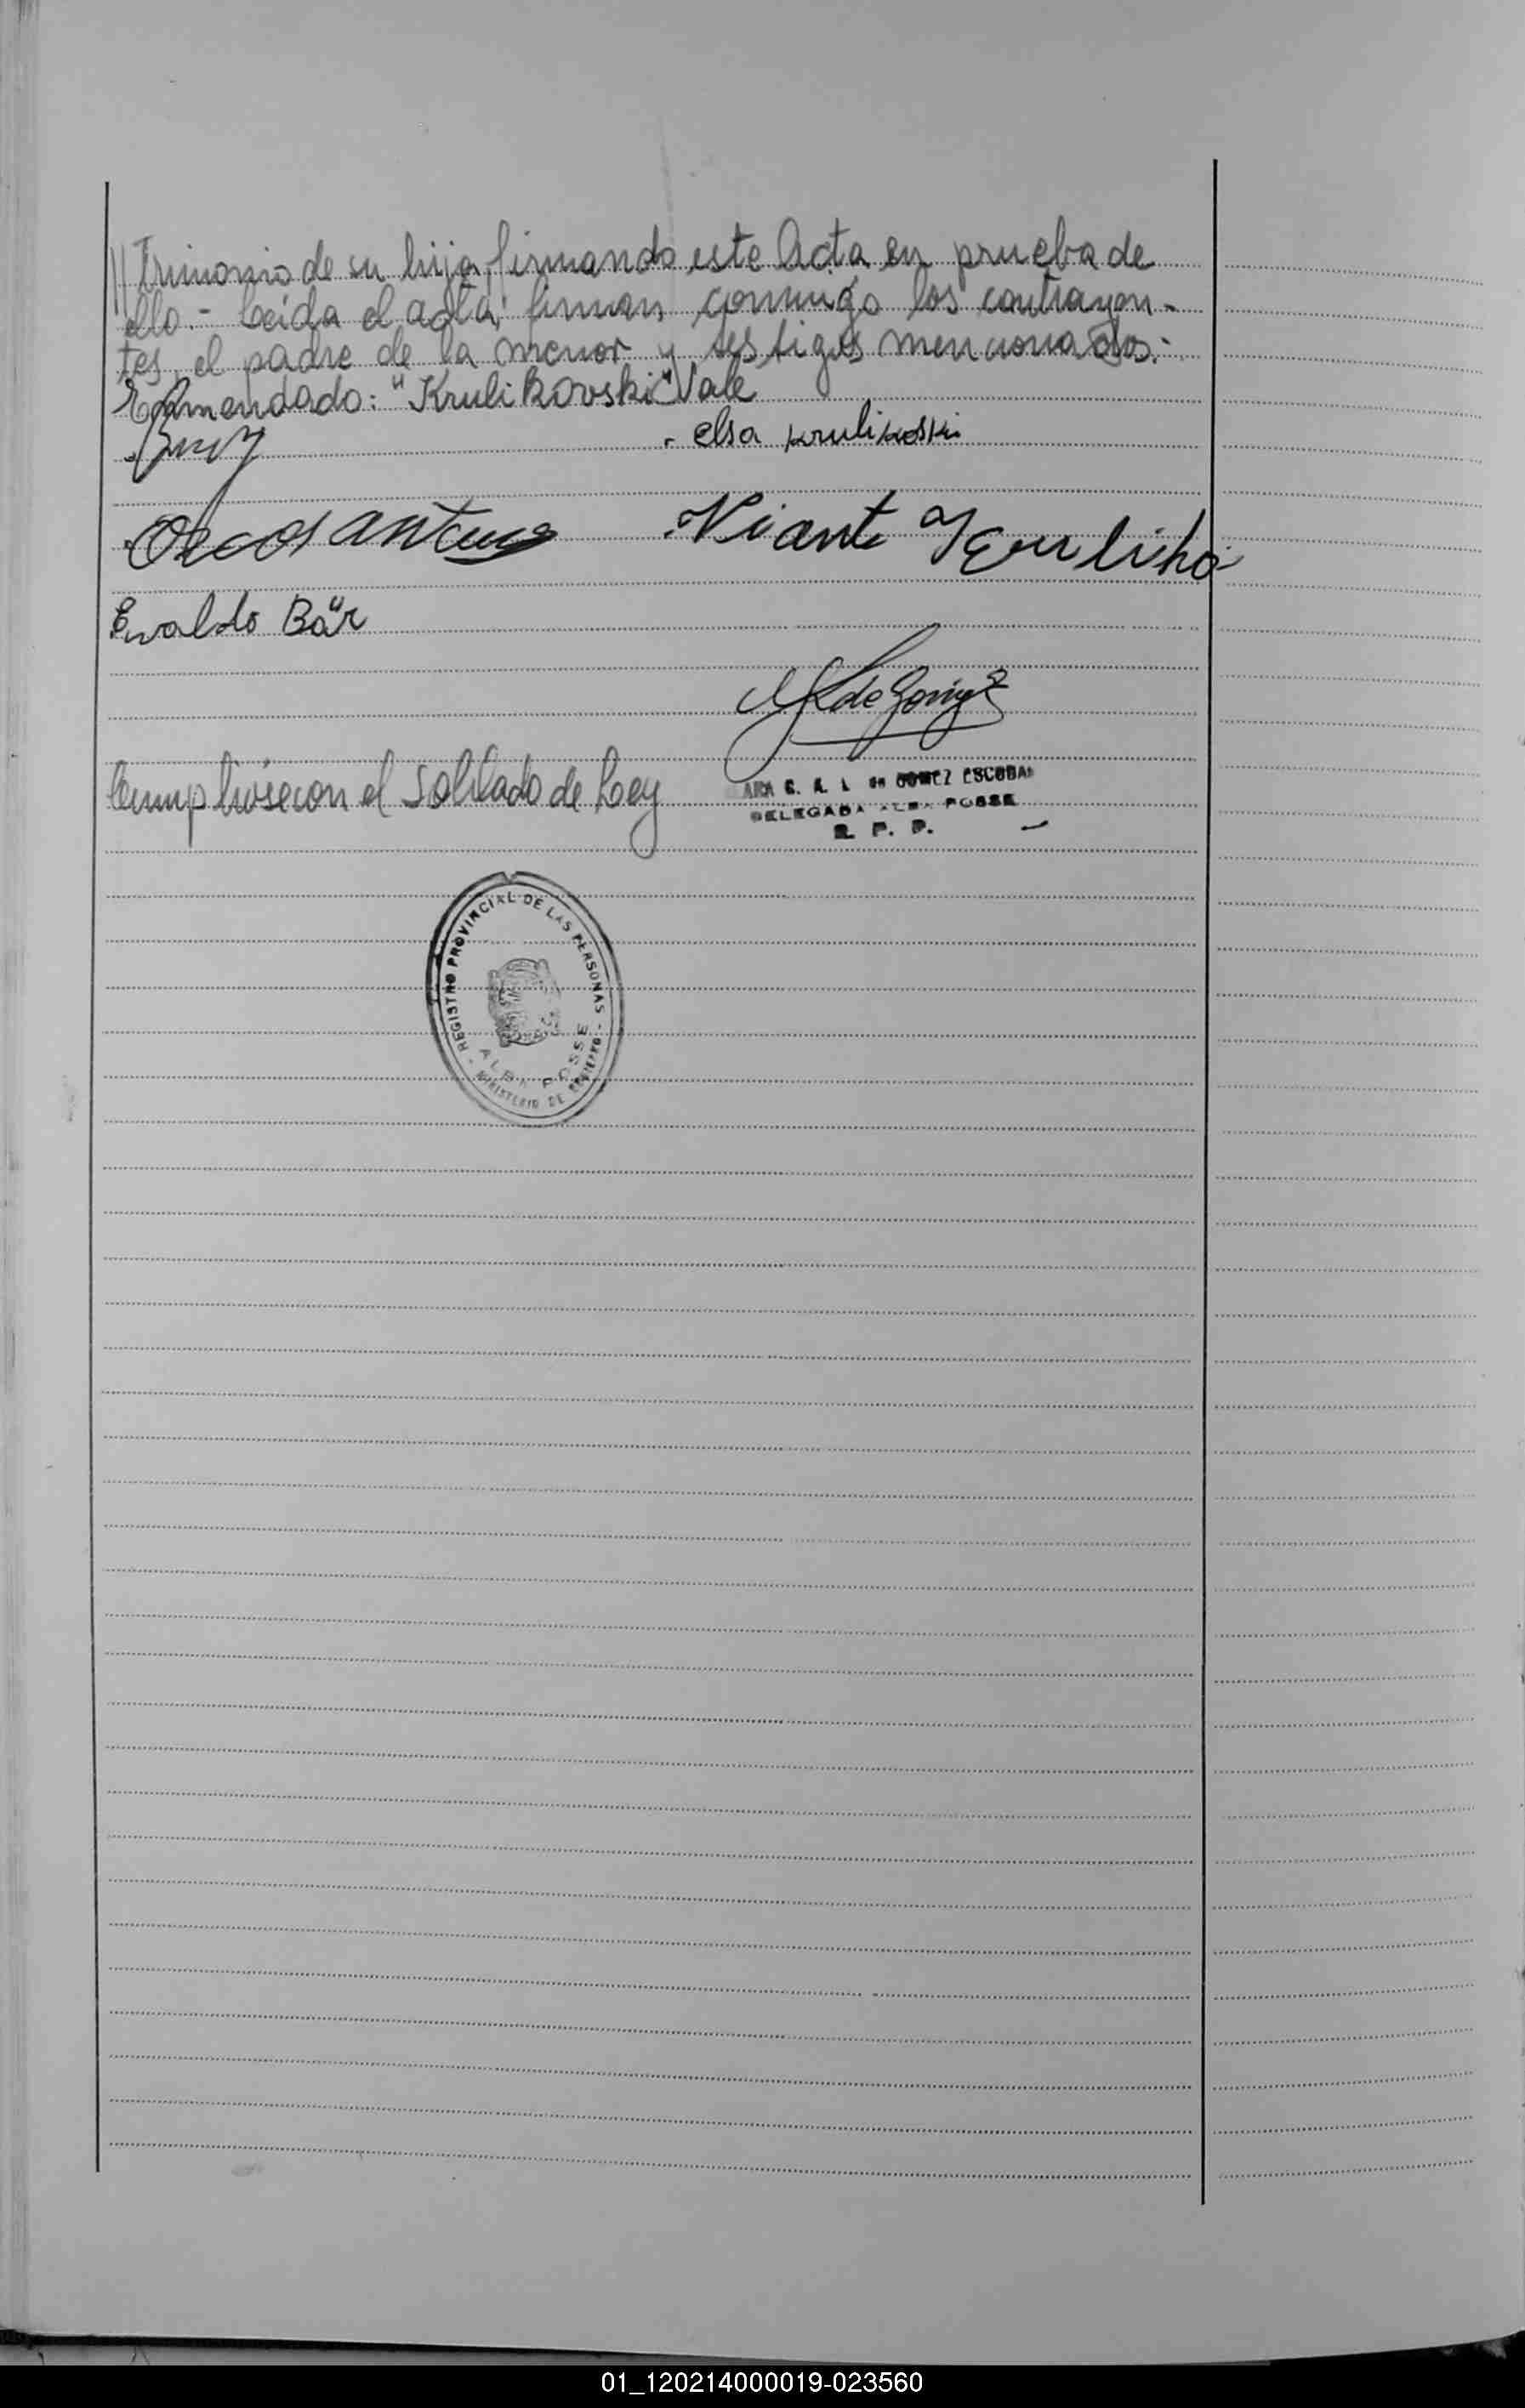 //trimonio de su hija, firmando este Acta en prueba de
ello.- Leida el acta, firman conmigo los contrayen-
tes, el padre de la menor y testigos mencionados.-
Enmendado: "Krulikovski" Vale
elsa krulikoski
Ewaldo Bär
M de Gomez
Cumpliose con el Sellado de Ley
de GOMEZ ESCOBAR
DELEGADA ALBA POSSE
R. P. P.
REGISTRO PROVINCIAL DE LAS PERSONAS - MINISTERIO DE GOBIERNO -
ALBA POSSE
01_120214000019-023560